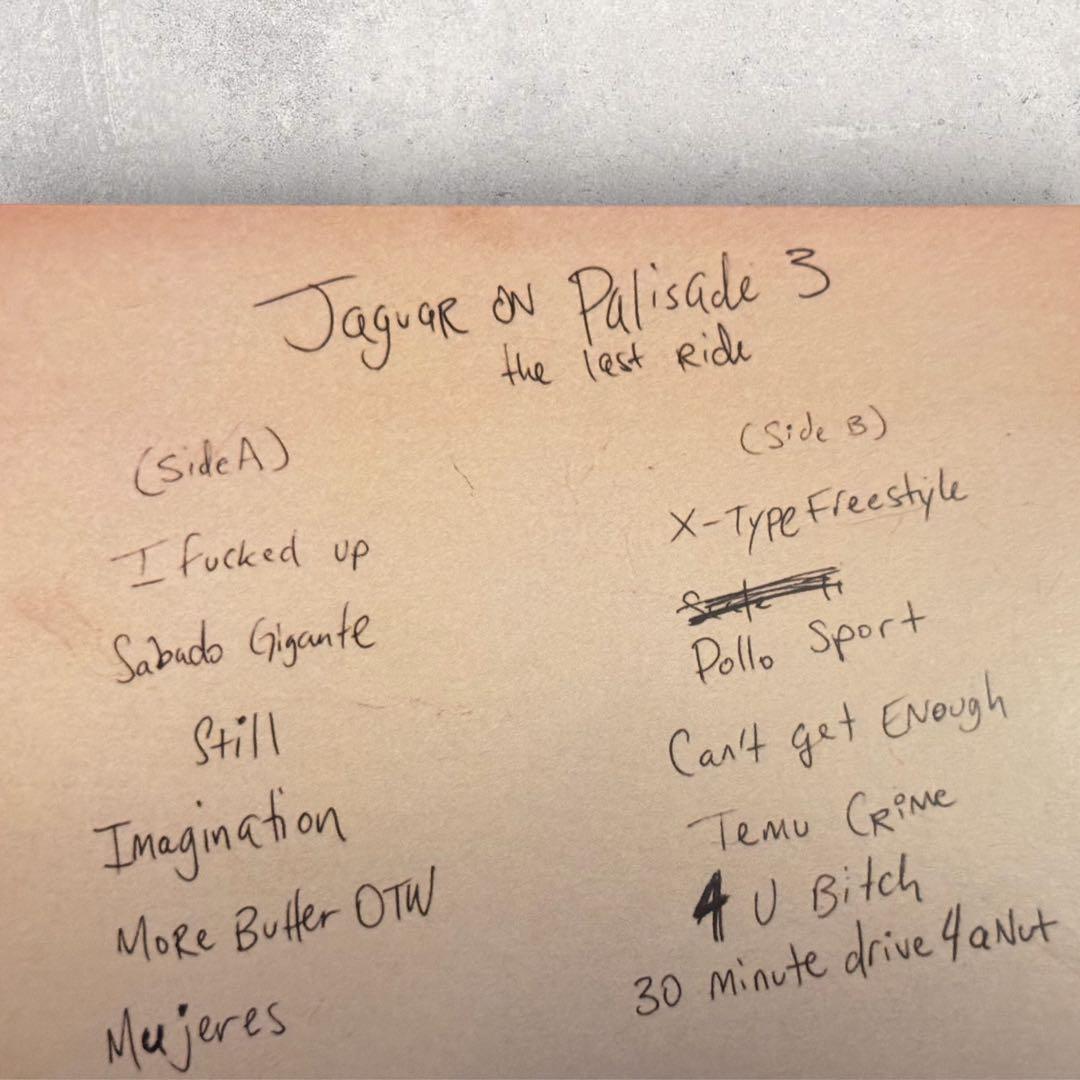 Jaguar on Palisade 3
the last Ride
(Side A)
I fucked up
Sabado Gigante
Still
Imagination
More Butter OTW
Mujeres
(Side B)
X-Type Freestyle
Pollo Sport
Can't get Enough
Temu Crime
4 U Bitch
30 minute drive 4 a Nut